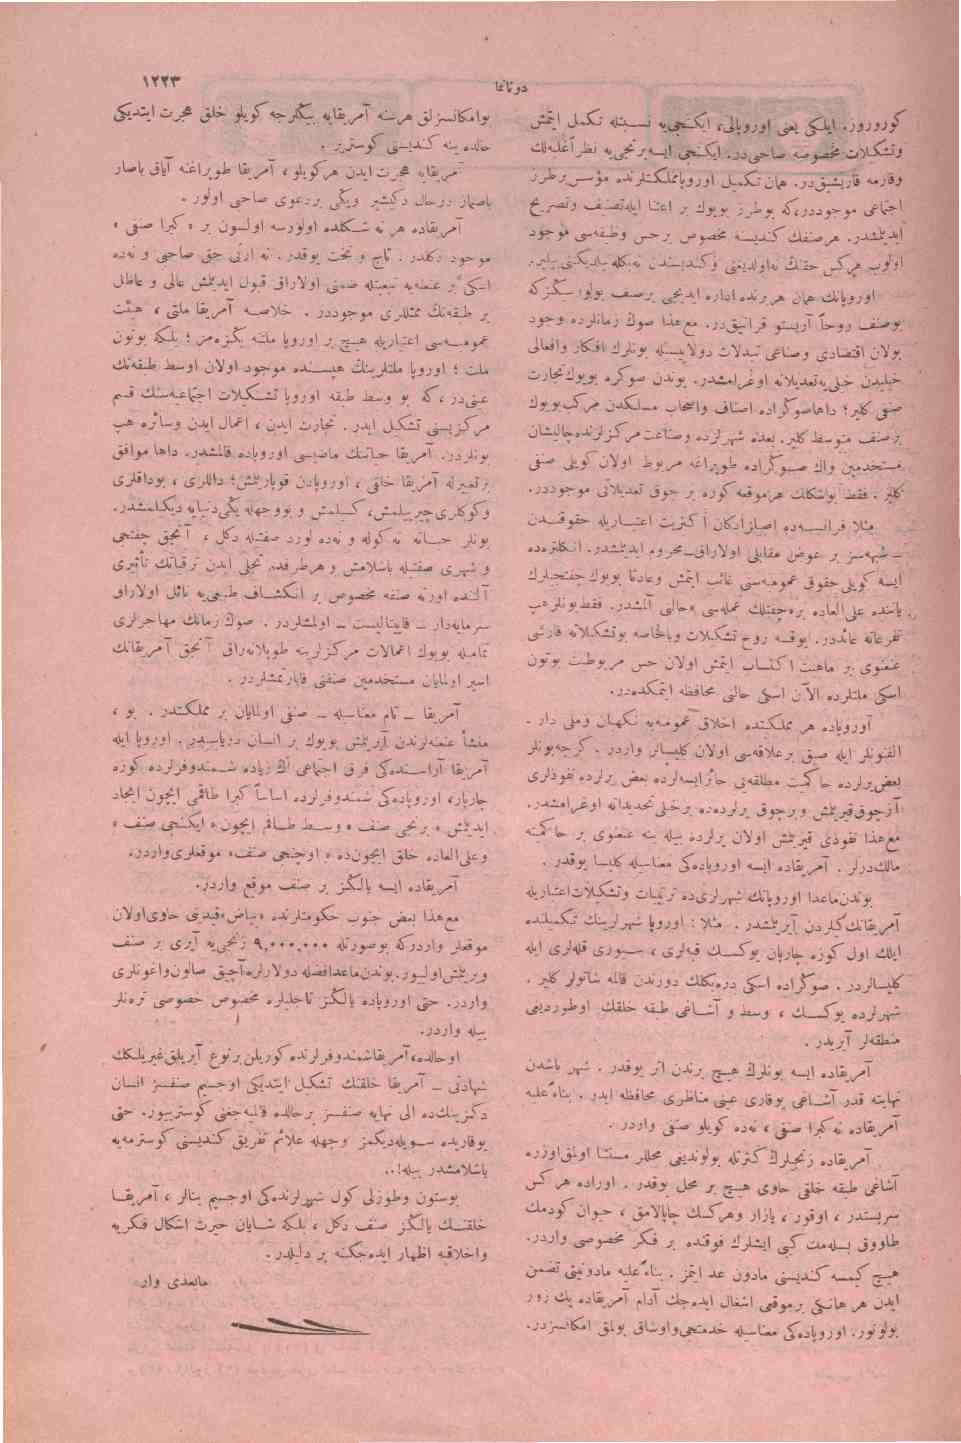 دوناتما
١٢٢٣
كورورز. ايلكى يعنى اوروپالى، ايكنجى‌يه نسبتله تكمل ايتمش
وتشكيلات مخصوصه صاحبى‌در. ايكنجى ايسه برنجى‌يه نظراً غلبه‌لك
وقارمه قاريشيق‌در. همان تكميل اوروپا مملكتلرنده مؤسس برطرز
اجتماعى موجوددر، كه بوطرز بويوك بر اعتنا ايله تصنيف وتصريح
ايديلمشدر. هرصنفك كنديسنه مخصوص برحس وظيفه‌سى موجود
اولوب هركس حقنك نه اولديغنى وكنديسندن نه بكله‌نيلديكنى بيلير.
اوروپانك همان هر برنده اداره ايديجى برصنف بولور سكزكه
بوصنف روحاً آريستو قراتيق‌در. مع‌هذا صوك زمانلرده وجود
بولان اقتصادى وصناعى تبدلات دولاييسيله بونلرك افكار وافعالى
خيليدن خيلى‌يه تعديلاته اوغرامشدر. بوندن صوكره بويوك تجارت
صنفى كلير؛ داها صوكراده اصناف واصحاب مسلكدن مركب بويوك
برصنف متوسط كلير. بعده شهرلرده وصناعت مركزلرنده چاليشان
مستخدمين واك صوكراده طوپراغه مربوط اولان كويلى صنفى
كلير. فقط بواشكلك هرموقعه كوره بر چوق تعديلاتى موجوددر.
مثلا فرانسه‌ده اصيلزادكان اكثريت اعتباريله حقوقندن
ـ شبهه‌سز بر عوض مقابلى اولاراق ـ محروم ايديلمشدر. انكلتره‌ده
ايسه كويلى حقوق عموميه‌سى غائب ايتمش وعادتا بويوك چفتجيلرك
ياننده على‌العاده بره چفتلك عمله‌سى » حالنى آلمشدر. فقط بونلر هپ
تفرعاته عائددر. يوقسه روح تشكيلات وبالخاصه بوتشكيلاته قارشى
عنعنوى بر ماهيت اكتساب ايتمش اولان حس مربوطيت بوتون
اسكى ملتلرده الآن اسكى حالنى محافظه ايتمكده‌در.
آوروپاده هر مملكتده اخلاق عموميه‌يه نكهبان وملى دار -
الفنونلر ايله صيق برعلاقه‌سى اولان كليسالر واردر. كرچه بونلر
بعض يرلرده حاكميت مطلقه‌يى حائز ايسه‌لرده بعض يرلرده نفوذلرى
آز چوق قيريلمش وبرچوق يرلرده‌ده برخيلى تجديداته اوغرامشدر.
مع‌هذا نفوذى قيريلمش اولان يرلرده بيله ينه عنعنوى بر حاكميته
مالكدرلر. آمريقاده ايسه اوروپاده‌كى معناسيله كليسا يوقدر.
بوندن ماعدا اوروپانك شهرلرى‌ده ترتيبات وتشكيلات اعتباريله
آمريقانك‌كيلردن آيريلمشدر. مثلا: اوروپا شهرلرينك تكميلنده
ايلك اول كوزه چارپان يوكسك قبه‌لرى، سورى قله‌لرى ايله
كليسالردر. صوكراده اسكى دره‌بكلك دورندن قالمه شاتولر كلير.
شهرلرده يوكسك، وسط و آشاغى طبقه خلقك اوطورديغى
منطقه‌لر آيريدر.
آمريقاده ايسه بونلرك هيچ برندن اثر يوقدر. شهر باشدن
نهايته قدر آشاغى يوقارى عينى مناظرى محافظه ايدر. بناءً عليه
آمريقاده نه كبرا صنفى، نه‌ده كويلو صنفى واردر.
آمريقاده زنجيلرك كثرتله بولونديغى محللر مستثنا اولمق اوزره
آشاغى طبقه خلقى حاوى هيچ بر محل يوقدر. اوراده هر كس
سربستدر، اوقور، يازار وهركسك چاپالامق، حيوان كودمك
طاووق بسله‌مك كبى ايشلرك فوقنده بر فكر مخصوصى واردر.
هيچ كيمسه كنديسنى مادون عد ايتمز. بناءً عليه مادونيتى تضمن
ايدن هر هانكى برموقعى اشغال ايده‌جك آدام آمريقاده پك زور
بولونور. اوروپاده‌كى معناسيله خدمتجى واوشاق بولمق امكانسزدر.
بوامكانسزلق هرسنه آمريقايه بيكلرجه كويلو خلق هجرت ايتديكى
حالده ينه كنديسنى كوسترير.
آمريقايه هجرت ايدن هركويلو، آمريقا طوپراغنه آياق باصار
باصماز درحال دكيشير ويكى بردعوى صاحبى اولور.
آمريقاده هر نه شكلده اولورسه اولسون بر « كبرا صنفى »
موجود دكلدر. تاج و تخت يوقدر. نه ارثى حق صاحبى و نه‌ده
اسكى بر عنعنه‌يه تبعيتله ضمنى اولاراق قبول ايديلمش عالى و عاطل
بر طبقه‌نك ممثللرى موجوددر. خلاصه آمريقا ملتى، هيئت
عموميه‌سى اعتباريله هيچ بر اوروپا ملتنه بكزه‌مز؛ بلكه بوتون
ملت؛ اوروپا ملتلرينك هپسنده موجود اولان اوسط طبقه‌نك
عينى‌در، كه بو وسط طبقه اوروپا تشكيلات اجتماعيه‌سنك قسم
مركزيسنى تشكيل ايدر. تجارت ايدن، اعمال ايدن وسائره هپ
بونلردر. آمريقا حياتنك ماضيسى اوروپاده قالمشدر. داها موافق
برتعبيرله آمريقا خلقى، اوروپادن قوپاريلمش؛ داللرى، بوداقلرى
وكوكلرى چيرپيلمش، كسيلمش و بووجهله يكى‌دنيايه ديكيلمشدر.
بونلر حياته نه كوله و نه‌ده لورد صفتيله دكل، آنجق چفتجى
و شهرى صفتيله باشلامش و هر طرفدن تجلى ايدن ترقياتك تأثيرى
آلتنده اورته صنفه مخصوص بر انكشاف طبيعى‌يه نائل اولاراق
سرمايه‌دار ـ قاپيتاليست ـ اولمشلردر. صوك زمانك مهاجرلرى
تماميله بويوك اعمالات مركزلرينه طوپلانه‌راق آنجق آمريقانك
اسير اولمايان مستخدمين صنفنى قبارتمشلردر.
آمريقا ـ تام معناسيله ـ صنفى اولمايان بر مملكتدر. بو،
منشأ عنعنه‌لرندن آيريلمش بويوك بر انسان درياسيدر. اوروپا ايله
آمريقا آراسنده‌كى فرق اجتماعى اك زياده شمندوفرلرده كوزه
چارپار، اوروپاده‌كى شمندوفرلرده اساساً كبرا طاقمى ايچون ايجاد
ايديلمش « برنجى صنف » وسط طاقم ايچون « ايكنجى صنف »
وعلى‌العاده خلق ايچون‌ده « اوچنجى صنف » موقعلرى واردر.
آمريقاده ايسه يالكز بر صنف موقع واردر.
مع‌هذا بعض جنوب حكومتلرنده « بياض » قيدينى حاوى اولان
موقعلر واردر كه بوصورتله ٩,٠٠٠,٠٠٠ زنجى‌يه آيرى بر صنف
ويريلمش اوليور. بوندن ماعدا فضله دولارلره آچيق صالون واغونلرى
واردر. حتى اوروپاده يالكز تاجليلره مخصوص خصوصى ترنلر
بيله واردر.
اوحالده، آمريقا شمندوفرلرنده كوريلن برنوع آيريليق غيريلكك
شهادتى ـ آمريقا خلقنك تشكيل ايتديكى اوجسيم صنفسز انسان
دكزينك‌ده الى نهايه صنفسز برحالده قالميه‌جغنى كوستريور. حتى
يوقاريده سويله‌ديكمز وجهله علائم تفريق كنديسنى كوسترمه‌يه
باشلامشدر بيله!..
بوستون وطوزلى كول شهرلرنده‌كى اوجسيم بنالر، آمريقا
خلقنك يالكز صنف دكل، بلكه شايان حيرت اشكال فكريه
واخلاقيه اظهار ايده‌جكنه بر دليلدر.
مابعدى وار